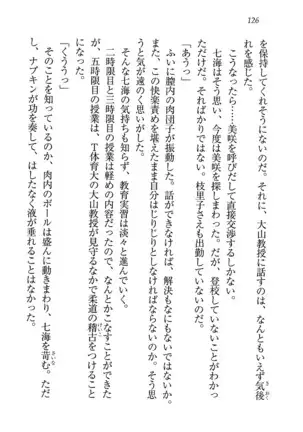 126
を保持してくれそうもない。それに、大山教授に話すのは、なんともいえず気後
れを感じた。
こうなったら……美咲を呼びだして直接交渉するしかない。そう思
七海はそう決めて、今度は美咲を探しまわった。だが、登校していないことがわか
っただけだ。そればかりではない。枝里子さえも出勤していないというのだ。
「あうっ」
ふいに膣内の肉団子が振動した。話ができなければ、解決もなにもないではない
か。このまま、この快楽責めを堪えたまま自分はじりじりとしなければならない。そう思
うと気が遠のく思いがした。
そんな七海の気持ちも知らず、教育実習は淡々と進んでいく。
二時限目と三時限目の授業は軽めの内容だったので、なんとかこなすことができた
が、五時限目の授業は、T体育大の大山教授が見守るなかで柔道の稽古をつけること
だった。
「くううっ」
そのことを知っているのか、肉内のボールは盛んに動きまわり、七海を苛む。ただ
し、ナプキンが功を奏して、はしたなく液が垂れることはなかった。